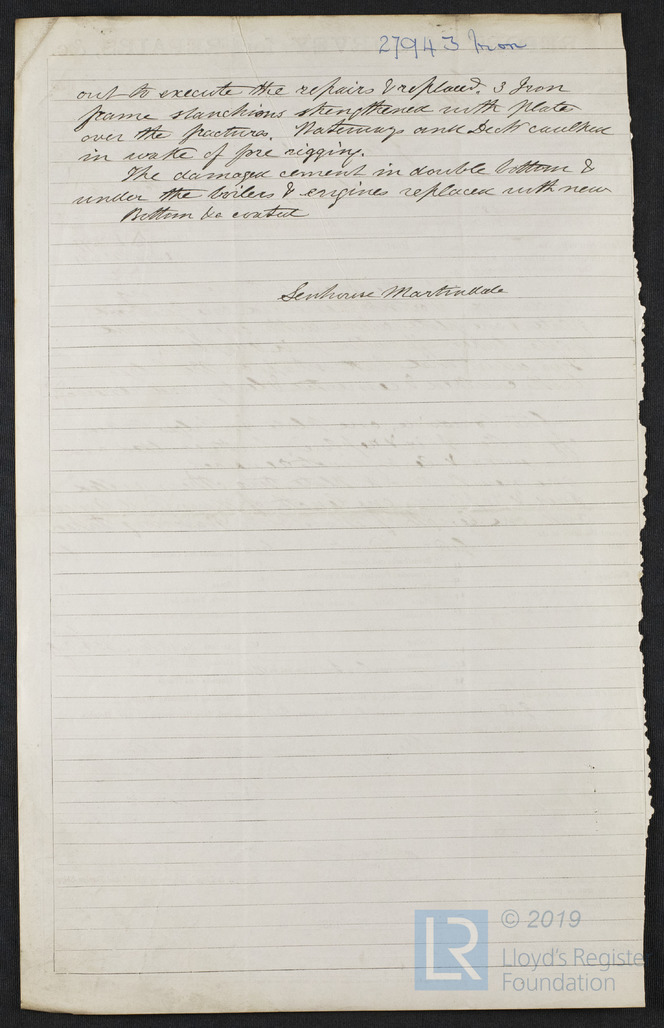 27943 Iron
out to execute the repairs & replaced. 3 Iron
frame stanchions strengthened with plate
over the fractures. Waterways and Deck caulked
in wake of fore rigging.
The damaged cement in double bottom &
under the boilers & engines replaced with new
Bottom &c coated
Senhouse Martindale
LR
© 2019
Lloyd's Registe
Foundation